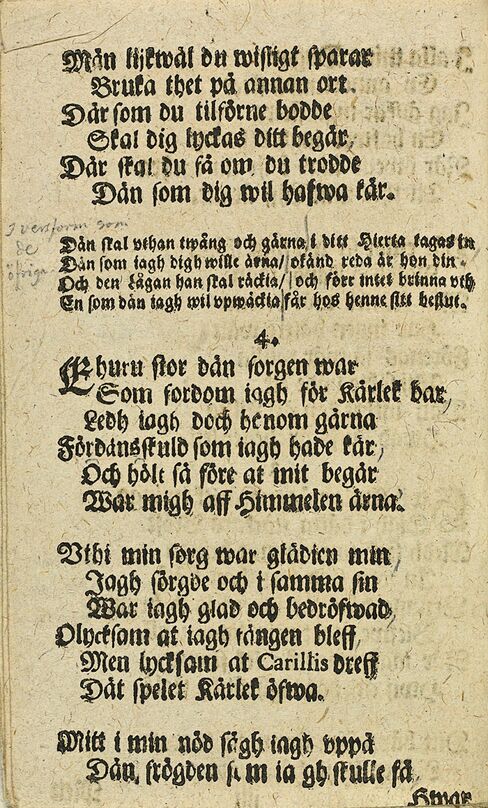 Män lijkwäl du wisligt sparar
Bruka thet på annan ort.
Där som du tilförne bodde
Skal dig lyckas ditt begär,
Där skal du få om du trodde
Dän som dig wil hafwa kär.
I versform som
de
öfriga
Dän skal vthan twång och gärna/ i ditt Hierta tagas in
Dän som iagh digh wille ärna/ okänd reda är hon din.
Och den lågan han skal räckia/ och förr intet brinna vth
En som dän iagh wil vpwäckia får hos henne sitt beslut.
4.
Ehuru stor dän sorgen war
Som fordom iagh för Kärlek bar,
Ledh iagh doch henom gärna
Fördänskuld som iagh hade kär,
Och hölt så före at mit begär
War migh aff Himmelen ärna.
Vthi min sorg war glädien min
Jagh sörgde och i samma sin
War iagh glad och bedröfwad,
Olycksam at iagh fången bleff,
Men lycksam at Carillis dreff
Dät spelet Kärlek öfwa.
Mitt i min nöd sågh iagh vppå
Dän frögden som iagh skulle få
Hwar